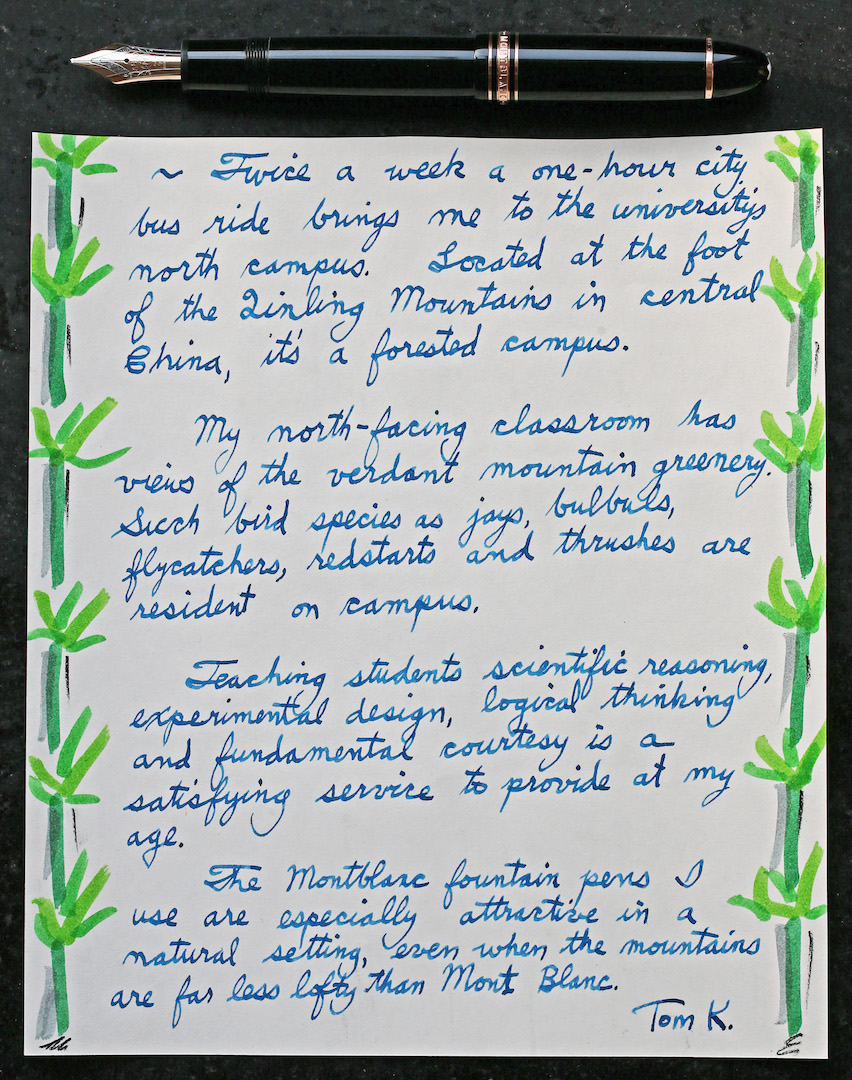 MONTBLANC
~ Twice a week a one-hour city
bus ride brings me to the university's
north campus. Located at the foot
of the Qinling Mountains in central
China, it's a forested campus.
My north-facing classroom has
views of the verdant mountain greenery.
Such bird species as jays, bulbuls,
flycatchers, redstarts and thrushes are
resident on campus.
Teaching students scientific reasoning,
experimental design, logical thinking
and fundamental courtesy is a
satisfying service to provide at my
age.
The Montblanc fountain pens I
use are especially attractive in a
natural setting, even when the mountains
are far less lofty than Mont Blanc.
Tom K.